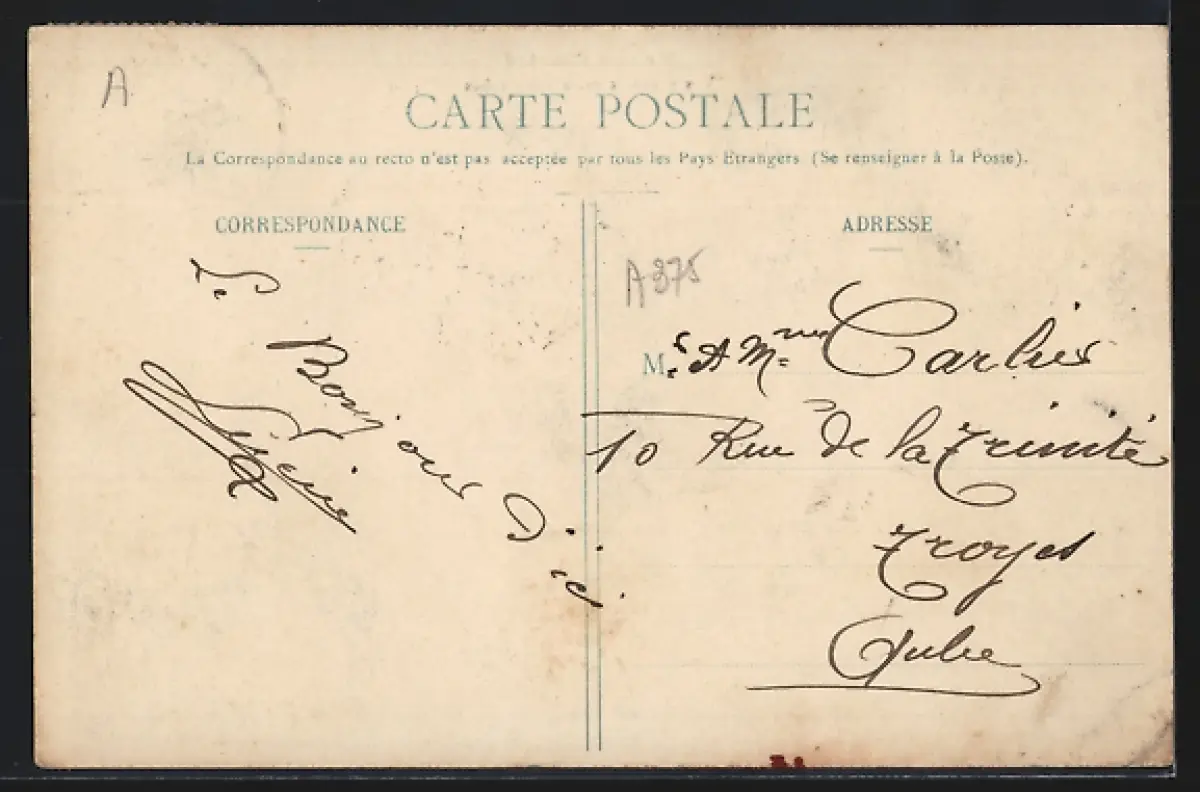 A
CARTE POSTALE
La Correspondance au recto n'est pas acceptée par tous les Pays Etrangers (Se renseigner à la Poste).
CORRESPONDANCE
Le Bonjour D'ici
ADRESSE
A375
M. et Mme Carlier
10 Rue de la Trinité
Troyes
Aube